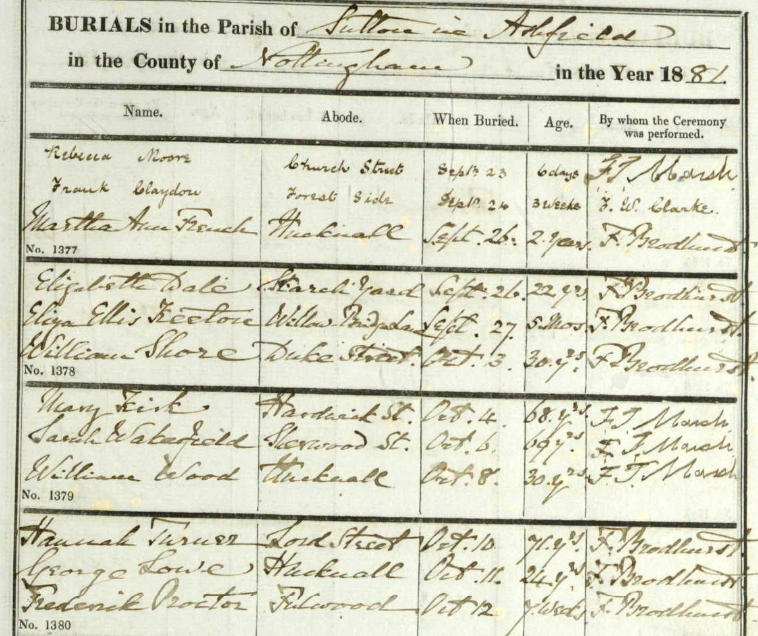 BURIALS in the Parish of Sutton in Ashfield
in the County of Nottingham in the Year 1881.
Name. Abode. When Buried. Age. By whom the Ceremony was performed.
Rebecca Moore Church Street Sept. 23 6 days F J Marsh
Frank Claydon Forest Side Sept. 24 3 weeks F. W. Clarke.
Martha Ann French Hucknall Sept. 26. 2 years F. Brodhurst
No. 1377
Elizabeth Dale Starch Yard Sept. 26. 22 yrs. F. Brodhurst
Eliza Ellis Keeton Willow Sept. 27. 5 Mos. F. Brodhurst
William Shore Duke Street. Oct. 3. 30. yrs. F. Brodhurst
No. 1378
Mary Kirk Hardwick St. Oct. 4. 68. yrs. F. J. Marsh
Sarah Wakefield Sherwood St. Oct. 6. 69 yrs. F. J. Marsh
William Wood Hucknall Oct. 8. 30. yrs F. J. Marsh
No. 1379
Hannah Turner Lord Street Oct. 10. 71. yrs. F. Brodhurst
George Lowe Hucknall Oct. 11. 24. yrs. F. Brodhurst
Frederik Proctor Fulwood Oct 12 7 weeks F. Brodhurst
No. 1380